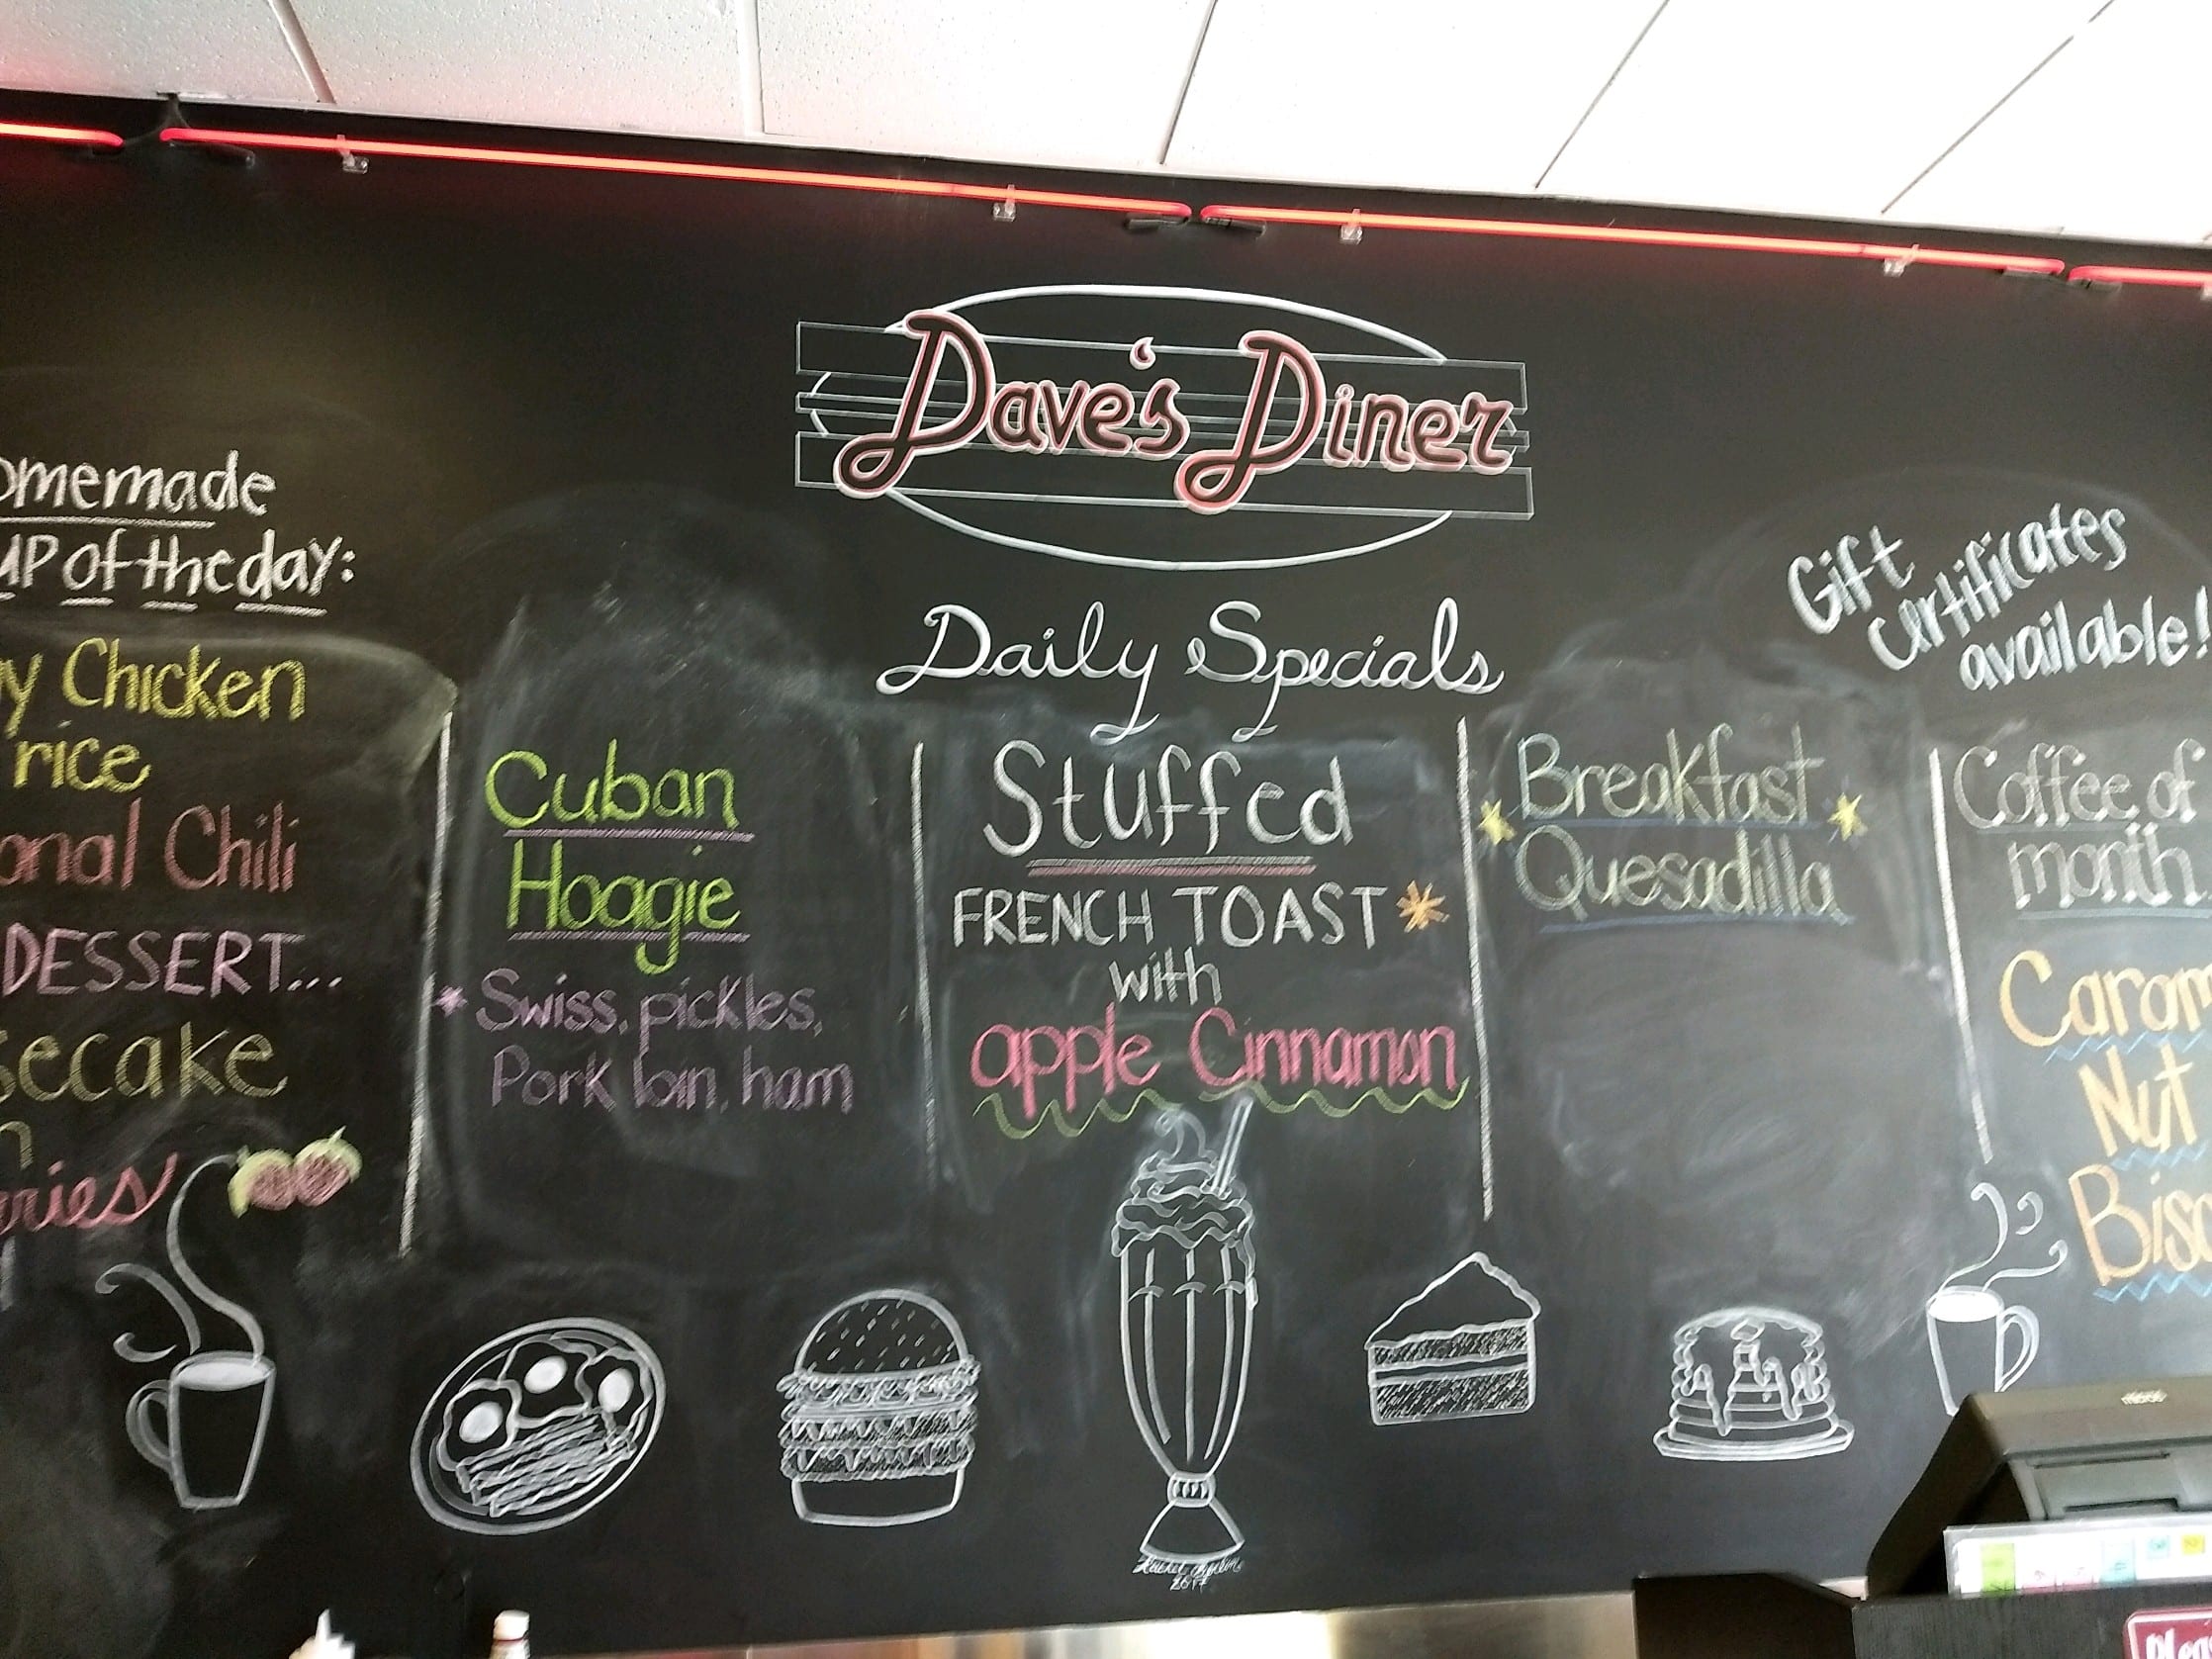 Dave's Diner
Daily Specials
omemade
UP of the day:
y Chicken
rice
onal Chili
DESSERT...
secake
n
ries
Cuban
Hoagie
* Swiss, pickles,
Pork loin, ham
Stuffed
FRENCH TOAST *
with
apple Cinnamon
Breakfast
Quesadilla
Gift
Certificates
available!
Coffee of
month
Caram
Nut
Bisc
2017
Pleas